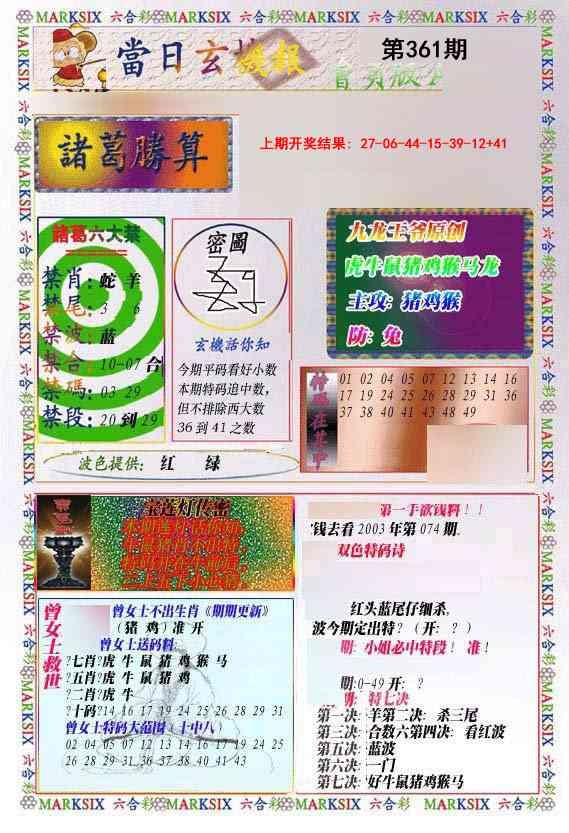 MARKSIX 六合彩 MARKSIX 六合彩 MARKSIX 六合彩 MARKSIX 六合彩
當日玄機報
第361期
諸葛勝算
上期开奖结果: 27-06-44-15-39-12+41
諸葛六大禁
禁肖: 蛇 羊
禁尾: 3 6
禁波: 蓝
禁合: 10-07 合
禁碼: 03 29
禁段: 20 到 29
密圖
玄機話你知
今期平码看好小数
本期特码追中数,
但不排除西大数
36 到 41 之数
九龙王爷原创
虎牛鼠猪鸡猴马龙
主攻: 猪鸡猴
防: 兔
特码在其中
01 02 04 05 07 12 13 14 16
17 19 24 25 26 28 29 31 36
37 38 40 41 43 48 49
波色提供: 红 绿
宝莲灯传密
第一手欲钱料!!
钱去看 2003 年第 074 期.
双色特码诗
红头蓝尾仔细杀,
波今期定出特? (开: ? )
期: 小姐必中特段! 准!
期:0-49 开: ?
期: 特七决
第一决: 羊第二决: 杀三尾
第三决: 合数六第四决: 看红波
第五决: 蓝波
第六决: 一门
第七决: 好牛鼠猪鸡猴马
曾女士救世
曾女士不出生肖《期期更新》
(猪 鸡) 准 开
曾女士送码料:
?七肖?虎 牛 鼠 猪 鸡 猴 马
?五肖?虎 牛 鼠 猪 鸡
?二肖?虎 牛
?十码?14 16 17 19 24 25 26 28 29 31
曾女士特码大范围 (十中八)
02 04 05 07 12 13 14 16 17 19 24 25
26 28 29 31 36 37 40 41 43
MARKSIX 六合彩 MARKSIX 六合彩 MARKSIX 六合彩 MARKSIX 六合彩